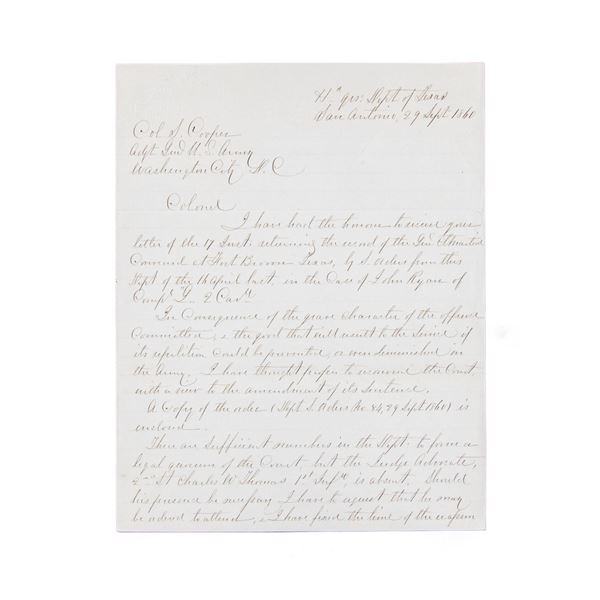 Hd qrs: Dept of Texas
San Antonio, 29 Sept 1860
Col S. Cooper
Adjt Genl U. S. Army
Washington City D. C
Colonel
I have had the honour to receive your
letter of the 17 Inst: returning the record of the Genl Ct Martial
Convened at Fort Brown Texas, by S. Orders from this
Dept of the 14 April last, in the Case of John Ryan of
Compy 2 Cavy
In Consequence of the grave character of the offence
Committed, & the good that will result to the Service if
its repetition could be prevented, or even diminished in
the Army. I have thought proper to reconvene the Court
with a view to the amendment of its Sentence.
A Copy of the order (Dept S. Orders No 84, 29 Sept 1860) is
enclosed.
There are Sufficient members in the Dept: to form a
legal quorum of the Court, but the Judge Advocate,
2nd Lt Charles W Thomas 1st Infy, is absent. Should
his presence be necessary I have to request that he may
be ordered to attend, & I have fixed the time of the